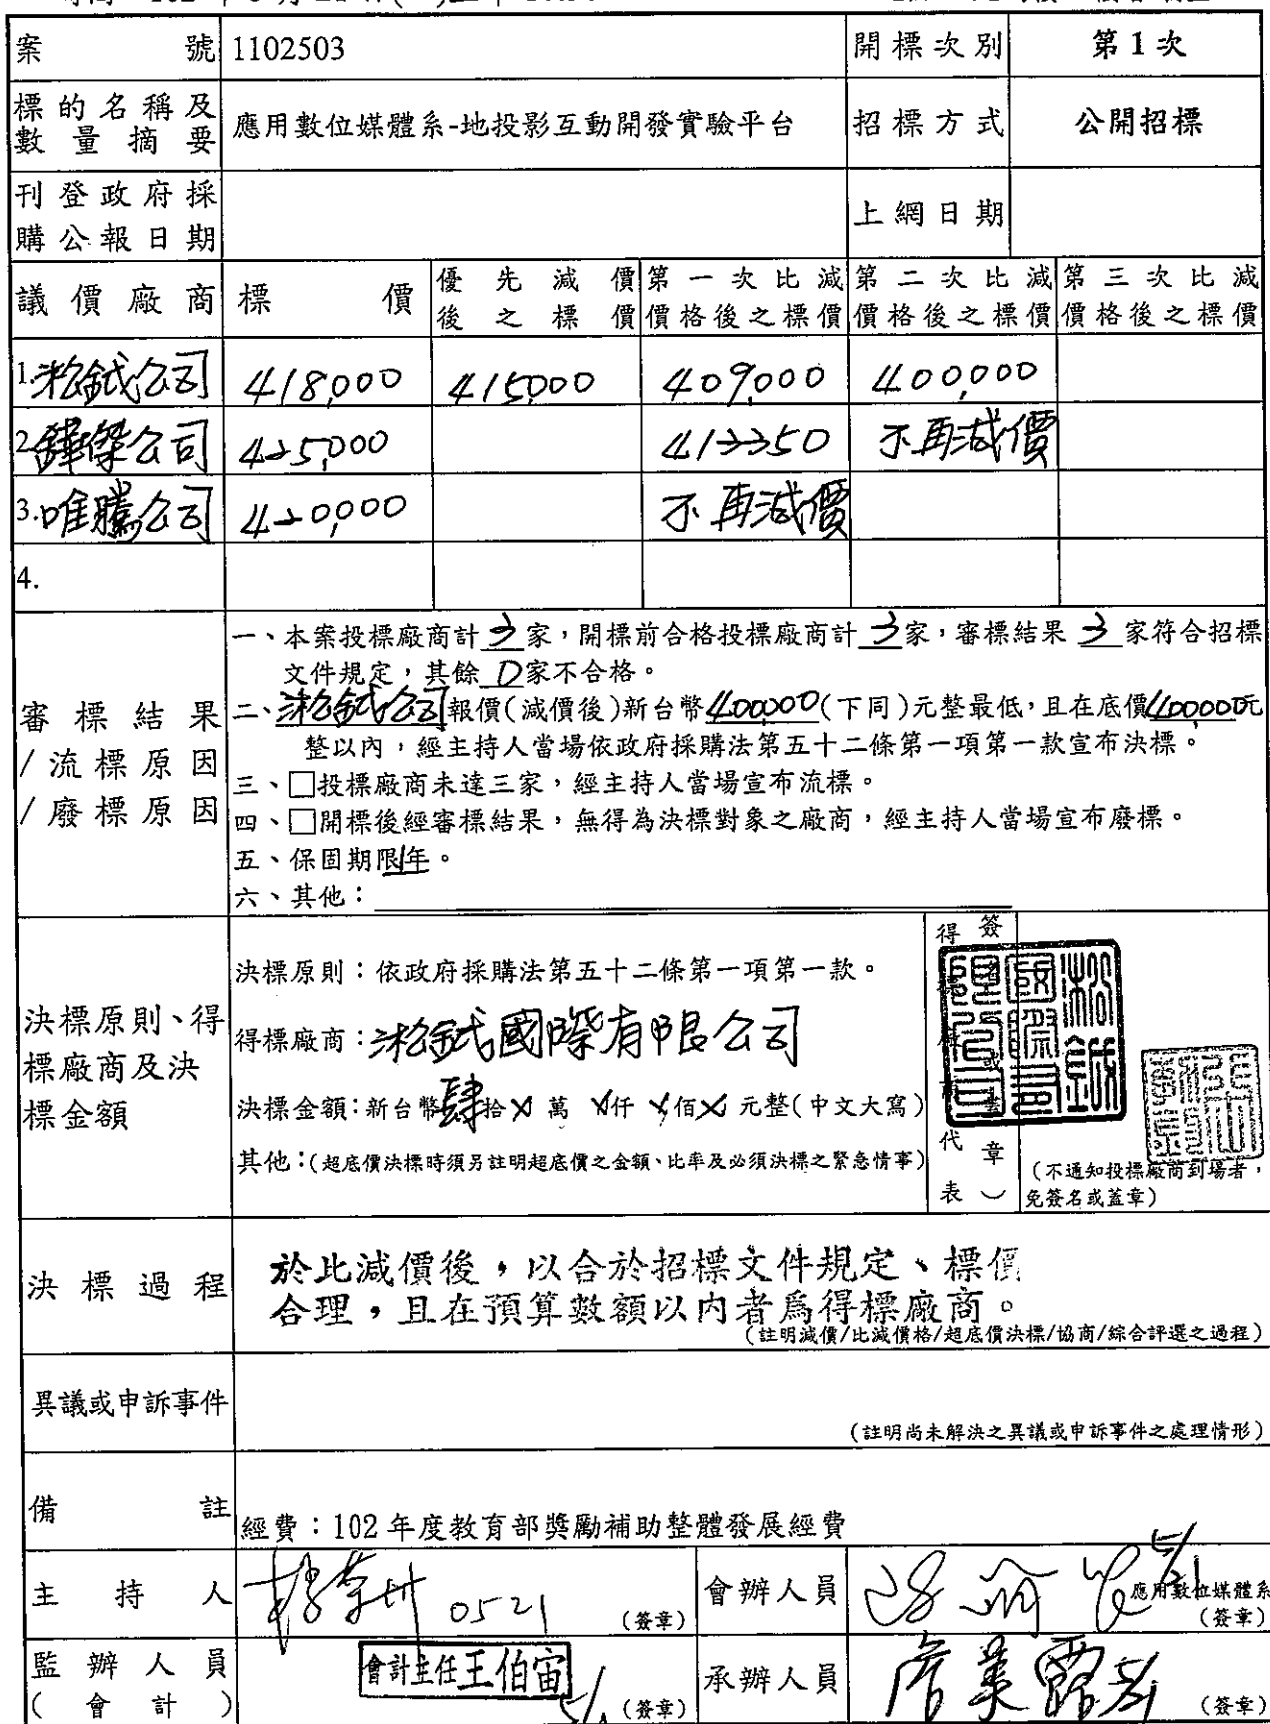 案號 1102503 開標次別 第1次
標的名稱及數量摘要 應用數位媒體系-地投影互動開發實驗平台 招標方式 公開招標
刊登政府採購公報日期 上網日期
議價廠商 標價 優先減價後之標價 第一次比減價格後之標價 第二次比減價格後之標價 第三次比減價格後之標價
1.淞鉽公司 418,000 415,000 409,000 400,000
2.鏵傑公司 425,000 412350 不再減價
3.唯騰公司 420,000 不再減價
4.
審標結果/流標原因/廢標原因
一、本案投標廠商計 3 家,開標前合格投標廠商計 3 家,審標結果 3 家符合招標
文件規定,其餘 0 家不合格。
二、淞鉽公司報價(減價後)新台幣400,000(下同)元整最低,且在底價400,000元
整以內,經主持人當場依政府採購法第五十二條第一項第一款宣布決標。
三、□投標廠商未達三家,經主持人當場宣布流標。
四、□開標後經審標結果,無得為決標對象之廠商,經主持人當場宣布廢標。
五、保固期限1年。
六、其他:
決標原則、得標廠商及決標金額
決標原則:依政府採購法第五十二條第一項第一款。
得標廠商:淞鉽國際有限公司
決標金額:新台幣肆拾X萬X仟X佰X元整(中文大寫)
其他:(超底價決標時須另註明超底價之金額、比率及必須決標之緊急情事)
(不通知投標廠商到場者,
免簽名或蓋章)
決標過程
於比減價後,以合於招標文件規定、標價
合理,且在預算數額以內者為得標廠商。
(註明減價/比減價格/超底價決標/協商/綜合評選之過程)
異議或申訴事件
(註明尚未解決之異議或申訴事件之處理情形)
備註 經費:102年度教育部獎勵補助整體發展經費
主持人 0521 (簽章) 會辦人員 5/21 應用數位媒體系 (簽章)
監辦人員(會計) 會計主任王伯宙 (簽章) 承辦人員 (簽章)